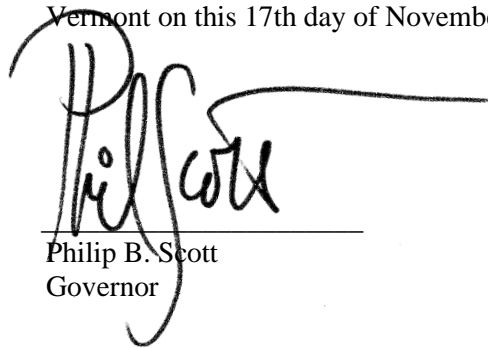 Vermont on this 17th day of Novembe
Phil Scott
Philip B. Scott
Governor